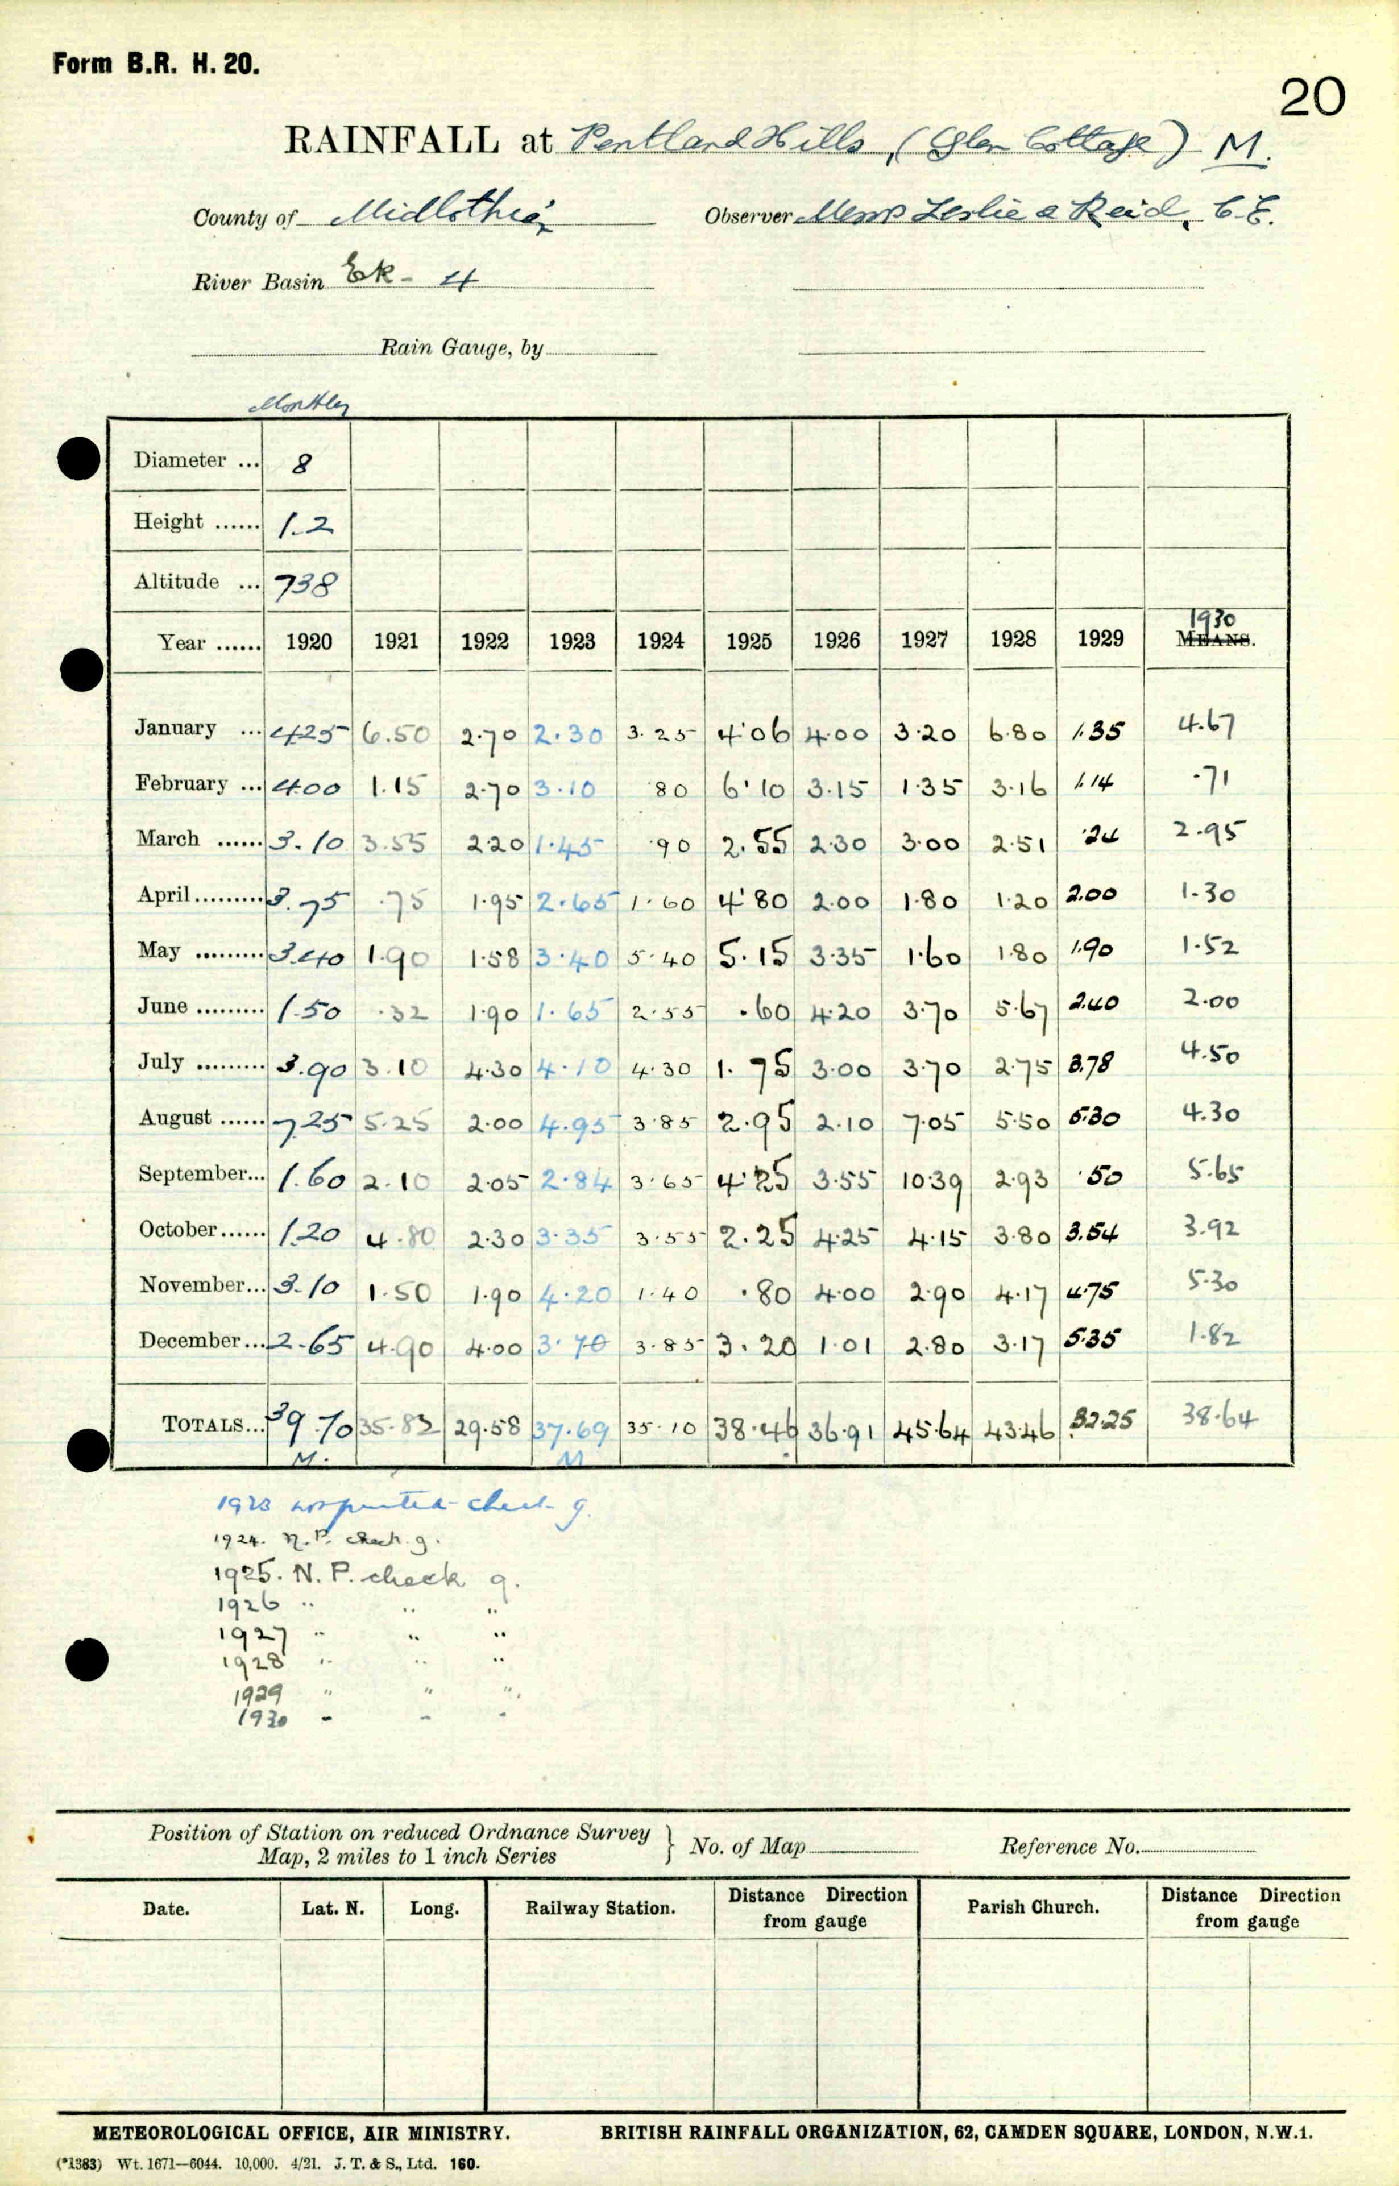 Form B.R. H. 20.
20
RAINFALL at Pentland Hills, (Glen Cottage) M.
County of Midlothian Observer Messrs Leslie & Reid, C.E.
River Basin Esk - 4
Rain Gauge, by
Monthly
Diameter ... 8
Height ...... 1.2
Altitude ... 738
1930
Year ...... 1920 1921 1922 1923 1924 1925 1926 1927 1928 1929 MEANS.
January ... 4.25 6.50 2.70 2.30 3.25 4.06 4.00 3.20 6.80 1.35 4.67
February ... 4.00 1.15 2.70 3.10 .80 6.10 3.15 1.35 3.16 1.14 .71
March ...... 3.10 3.55 2.20 1.45 .90 2.55 2.30 3.00 2.51 .24 2.95
April......... 3.75 .75 1.95 2.65 1.60 4.80 2.00 1.80 1.20 2.00 1.30
May ......... 3.40 1.90 1.58 3.40 5.40 5.15 3.35 1.60 1.80 1.90 1.52
June ......... 1.50 .32 1.90 1.65 2.55 .60 4.20 3.70 5.67 2.40 2.00
July ......... 3.90 3.10 4.30 4.10 4.30 1.75 3.00 3.70 2.75 3.78 4.50
August ...... 7.25 5.25 2.00 4.95 3.85 2.95 2.10 7.05 5.50 5.30 4.30
September... 1.60 2.10 2.05 2.84 3.65 4.25 3.55 10.39 2.93 .50 5.65
October...... 1.20 4.80 2.30 3.35 3.55 2.25 4.25 4.15 3.80 3.54 3.92
November... 3.10 1.50 1.90 4.20 1.40 .80 4.00 2.90 4.17 4.75 5.30
December... 2.65 4.90 4.00 3.70 3.85 3.20 1.01 2.80 3.17 5.35 1.82
TOTALS... 39.70 35.82 29.58 37.69 35.10 38.46 36.91 45.64 43.46 32.25 38.64
M. M
1923 not printed check g.
1924. N.P. check. g.
1925. N. P. check g.
1926 " " "
1927 " " "
1928 " " "
1929 " " "
1930 " " "
Position of Station on reduced Ordnance Survey
Map, 2 miles to 1 inch Series } No. of Map Reference No.
Date. Lat. N. Long. Railway Station. Distance Direction from gauge Parish Church. Distance Direction from gauge
METEOROLOGICAL OFFICE, AIR MINISTRY. BRITISH RAINFALL ORGANIZATION, 62, CAMDEN SQUARE, LONDON, N.W.1.
(*1383) Wt. 1671—6044. 10,000. 4/21. J. T. & S., Ltd. 160.